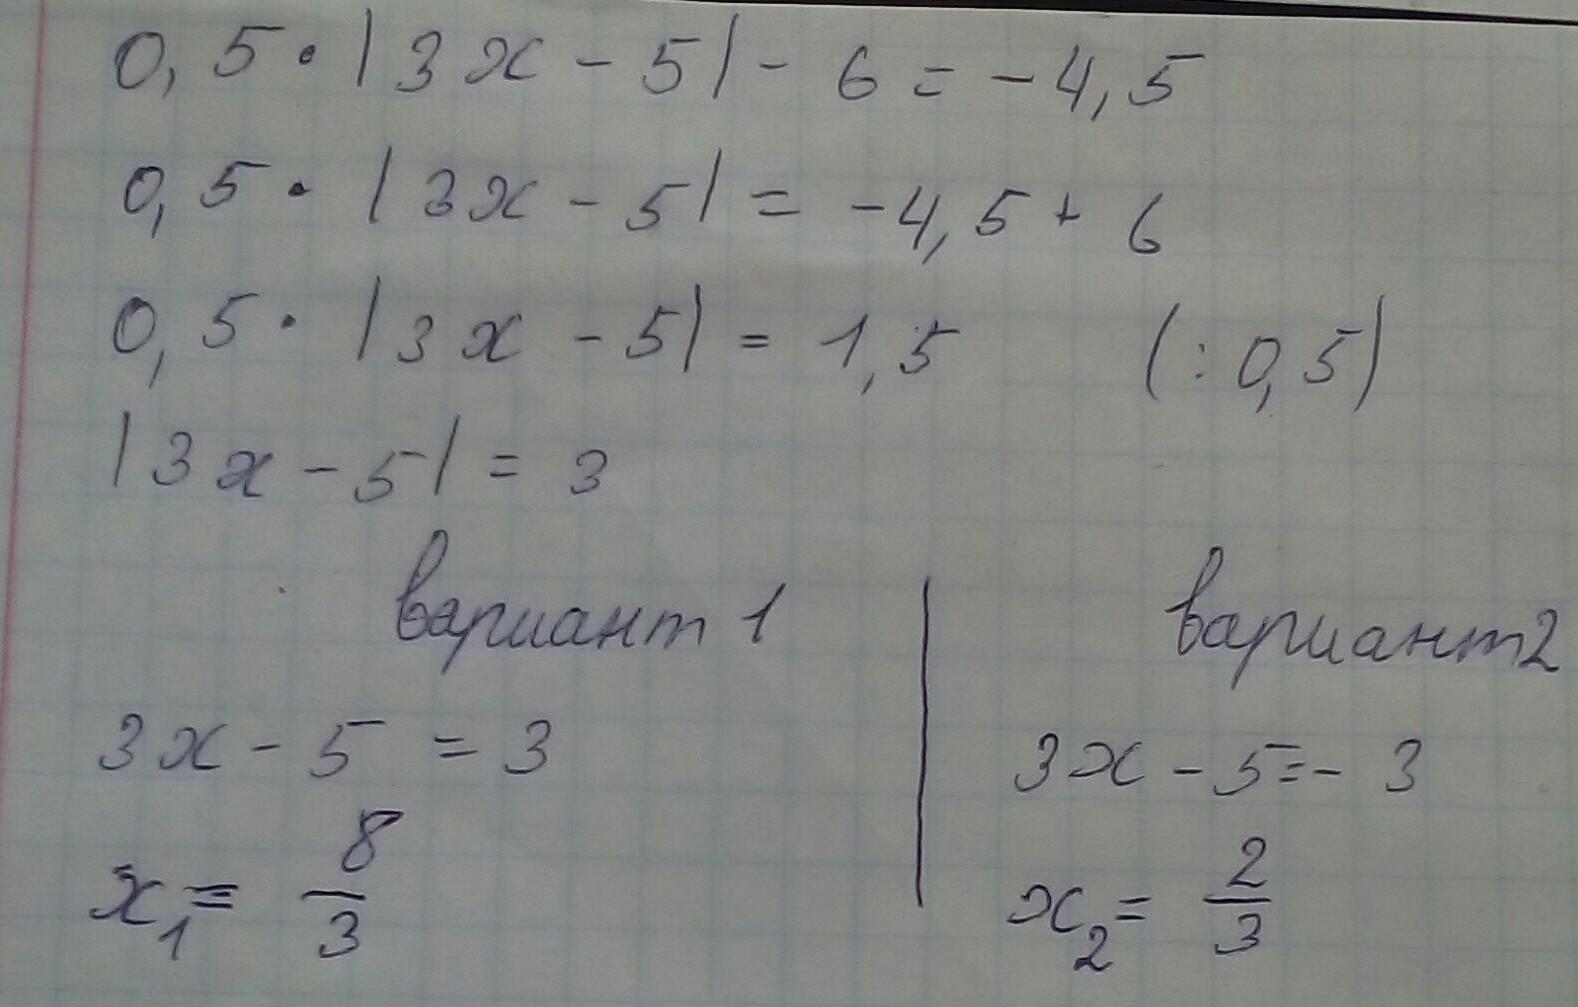 0,5·|3x-5|-6=-4,5
0,5·|3x-5|=-4,5+6
0,5·|3x-5|=1,5 (:0,5)
|3x-5|=3
вариант 1
3x-5=3
x₁=8/3
вариант 2
3x-5=-3
x₂=2/3